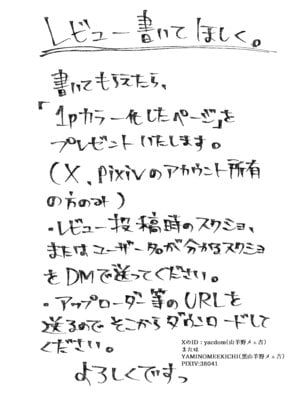 レビュー書いてほしく。
書いてもらえたら、
「1pカラー化したページ」を
プレゼントいたします。
(X、pixivのアカウント所有
の方のみ)
・レビュー投稿時のスクショ、
またはユーザー名が分かるスクショ
をDMで送ってください。
・アップローダー等のURLを
送るのでそこからダウンロードして
ください。
よろしくですっ
XのID:yaodom(山羊野メェ吉)
または
YAMINOMEEKICHI(黒山羊野メェ吉)
PIXIV:38041